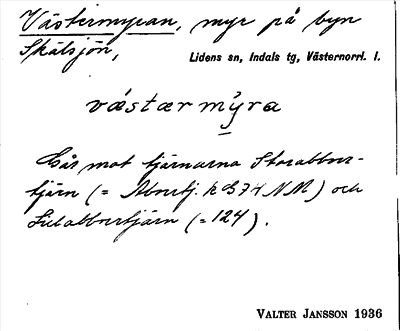 Västermyran, myr på byn
Skälsjön, Lidens sn, Indals tg, Västernorrl. l.
västærmy̆ra
Går mot tjärnarna Storabborr-
tjärn (= Abortj. k B 74 NM) och
Lillabborrtjärn (= 124).
VALTER JANSSON 1936